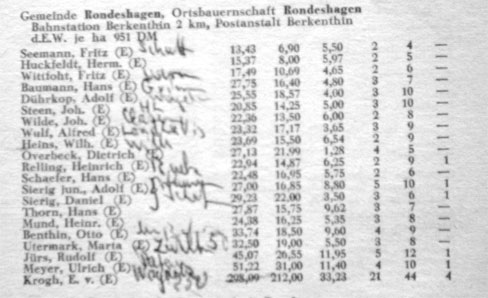 Gemeinde Rondeshagen, Ortsbauernschaft Rondeshagen
Bahnstation Berkenthin 2 km, Postanstalt Berkenthin
d.E.W. je ha 951 DM
Seemann, Fritz (E) 13,43 6,90 5,50 2 4 —
Huckfeldt, Herm. (E) 15,37 8,00 5,97 2 5 —
Wittfoht, Fritz (E) 17,49 10,69 4,65 2 6 —
Baumann, Hans (E) 27,75 16,40 4,80 3 7 —
Dührkop, Adolf (E) 25,55 18,57 4,00 3 10 —
Steen, Joh. (E) 20,85 14,25 5,00 3 10 —
Wilde, Joh. (E) 22,36 13,50 6,00 2 8 —
Wulf, Alfred (E) 23,32 17,17 3,65 3 9 —
Heins, Wilh. (E) 23,69 15,50 6,54 2 9 —
Overbeck, Dietrich (E) 27,13 21,99 1,28 4 5 —
Relling, Heinrich (E) 22,94 14,87 6,25 2 9 1
Schaefer, Hans (E) 22,48 16,95 5,75 2 6 —
Sierig jun., Adolf (E) 27,00 16,85 8,80 5 10 1
Sierig, Daniel (E) 29,23 22,00 3,50 3 6 1
Thorn, Hans (E) 27,87 15,75 9,62 3 7 —
Mund, Heinr. (E) 24,38 16,25 5,35 3 8 —
Benthin, Otto (E) 33,74 18,50 9,60 4 9 —
Utermark, Marta (E) 32,50 19,00 5,50 3 8 —
Jürs, Rudolf (E) 45,07 26,55 11,95 5 12 1
Meyer, Ulrich (E) 51,22 31,00 11,40 4 10 1
Krogh, E. v. (E) 298,09 212,00 33,23 21 44 4